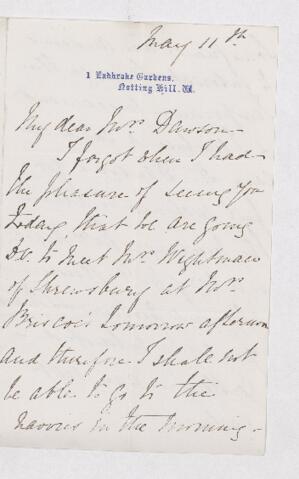 May 11th
1 Ladbroke Gardens.
Notting Hill. W.
My dear Mrs Dawson -
I forgot when I had
the pleasure of seeing you
today, that we are going
D.V. to meet Mrs Wightman
of Shrewsbury at Mrs
Briscoe's tomorrow afternoon
and therefore I shall not
be able to go to the
navvies in the morning -